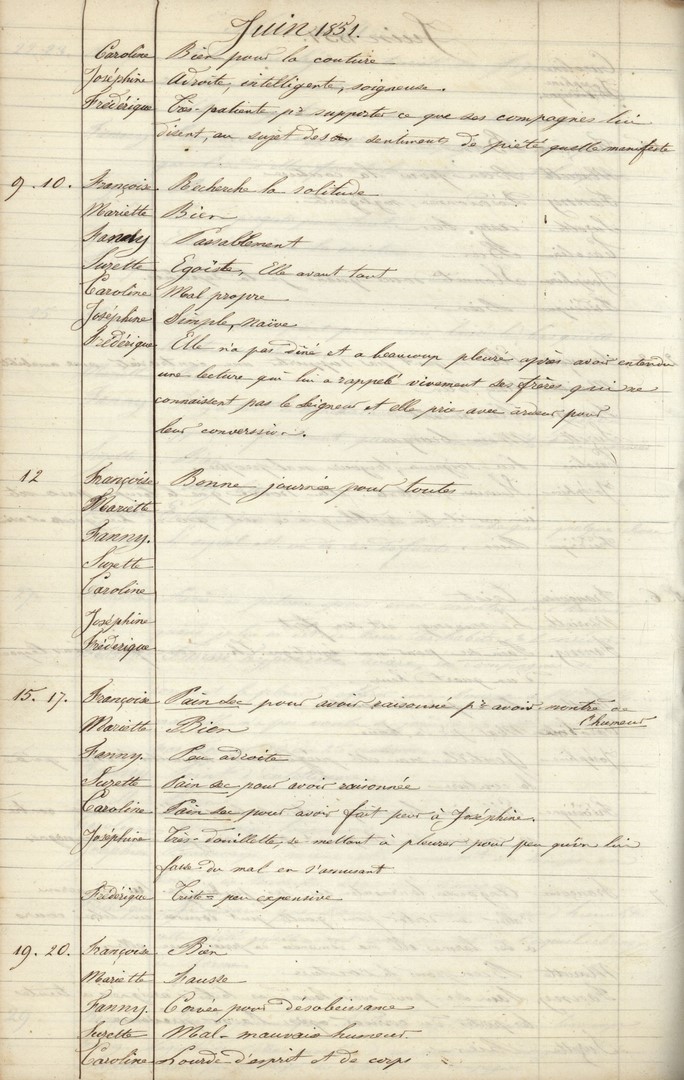 Juin 1851.
Caroline Bien pour la couture
Joséphine Adroite, intelligente, soigneuse.
Frédérique Très-patiente, pr supporter ce que ses compagnes lui
disent, au sujet des sentiments de piété qu'elle manifeste
9. 10. Françoise Recherche la solitude
Mariette Bien
Fanny Passablement
Suzette Egoïste, Elle avant tout
Caroline Mal propre
Joséphine Simple, naïve
Frédérique Elle n'a pas dîné et a beaucoup pleuré après avoir entendu
une lecture qui lui a rappelé vivement ses frères qui ne
connaissent pas le Seigneur et elle prie avec ardeur pour
leur conversion.
12 Françoise Bonne journée pour toutes
Mariette
Fanny.
Suzette
Caroline
Joséphine
Frédérique
15. 17. Françoise Pain sec pour avoir raisonné pr avoir montré de
l'humeur
Mariette Bien
Fanny. Peu adroite
Suzette Pain sec pour avoir raisonnée
Caroline Pain sec pour avoir fait peur à Joséphine.
Joséphine Très-douillette, se mettant à pleurer pour peu qu'on lui
fasse du mal en s'amusant
Frédérique Triste = peu expensive
19. 20. Françoise Bien
Mariette Fausse
Fanny. Corvée pour désobéissance
Suzette Mal - mauvaise humeur.
Caroline Lourde d'esprit et de corps